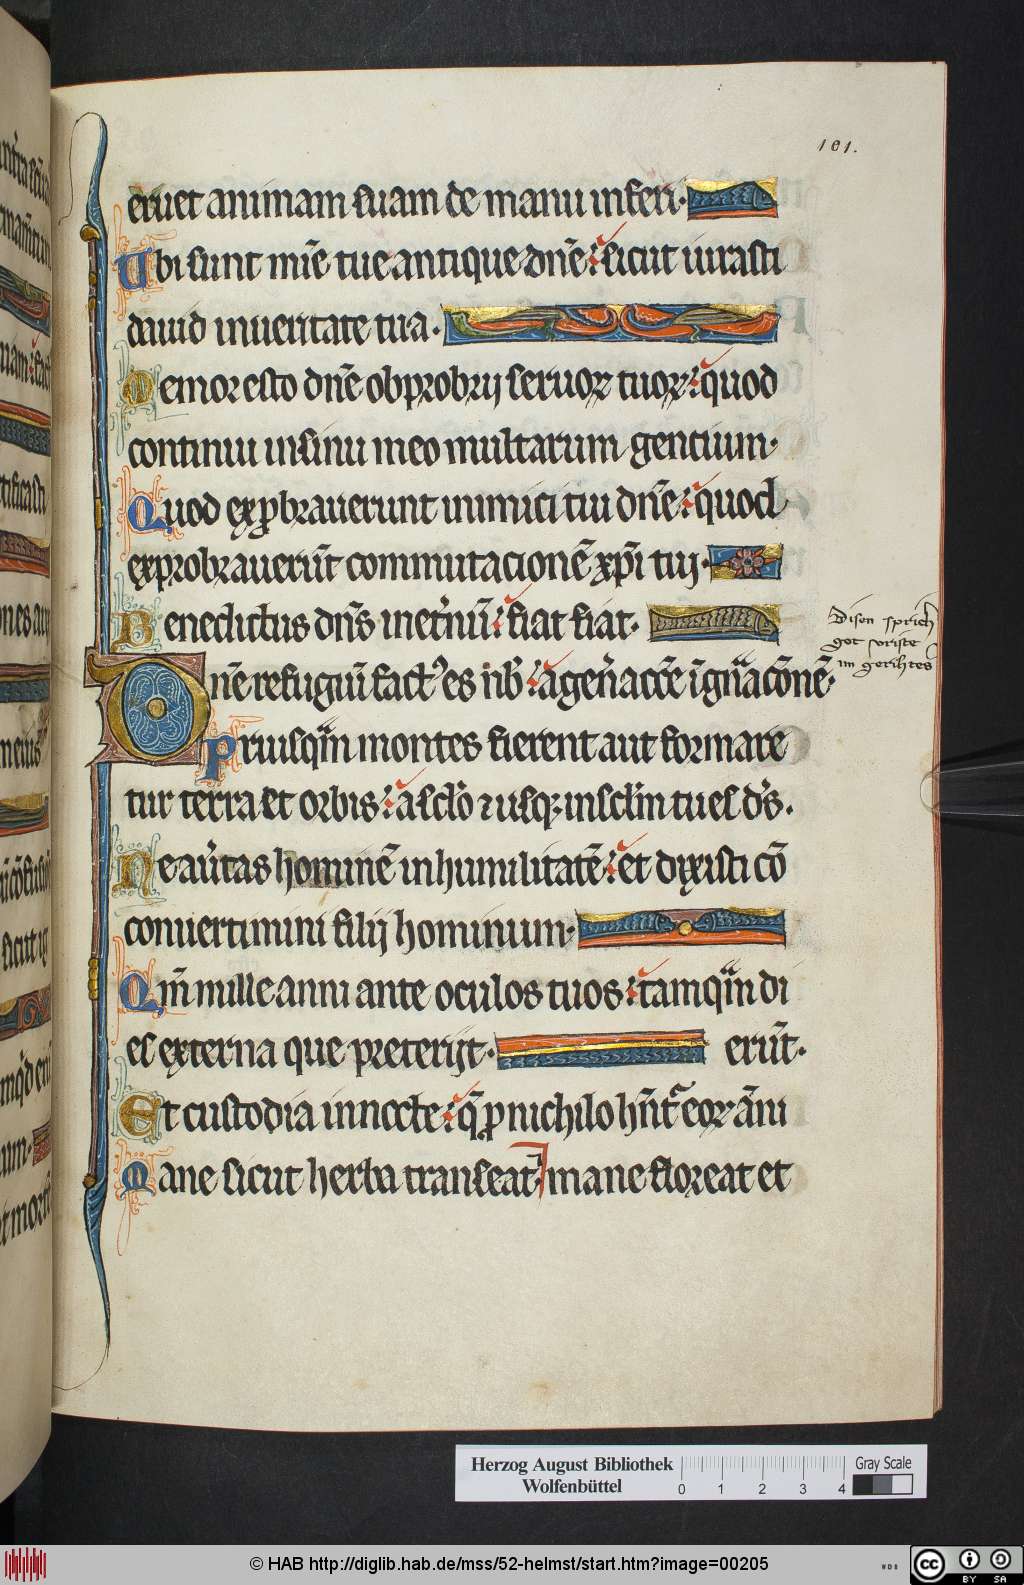 101.
eruet animam suam de manu inferi.
Ubi sunt mie tue antique dne: sicut iurasti
dauid in ueritate tua.
Memor esto dne obprobrij seruoꝝ tuoꝝ: quod
continui in sinu meo multarum gentium.
Quod exꝓbrauerunt inimici tui dne: quod
exprobrauerūt commutacionē xp̄i tuj.
Benedictus dn̄s inet̄nū: fiat fiat.
Dn̄e refugiū fact᷒ es nb̄: a gen̄acōe ī gn̄acōnē.
Priusqᷓm montes fierent aut formare
tur terra et orbis: a sc̄lo ⁊ usqꝫ in sc̄lm tu es ds̄.
Ne au̓tas hominē in humilitatē: et dixisti cō
conuertimini filij hominum.
Qm̄ mille anni ante oculos tuos: tamqᷓm di
es externa que preterijt. erūt.
Et custodia in nocte: q̄ ꝓ nichilo hn̄t᷑ eoꝝ āni
Mane sicut herba transeat mane floreat et
Disen sprich
got
im gerihtes
Herzog August Bibliothek
Wolfenbüttel
0 1 2 3 4
Gray Scale
© HAB http://diglib.hab.de/mss/52-helmst/start.htm?image=00205
WDB
cc BY SA